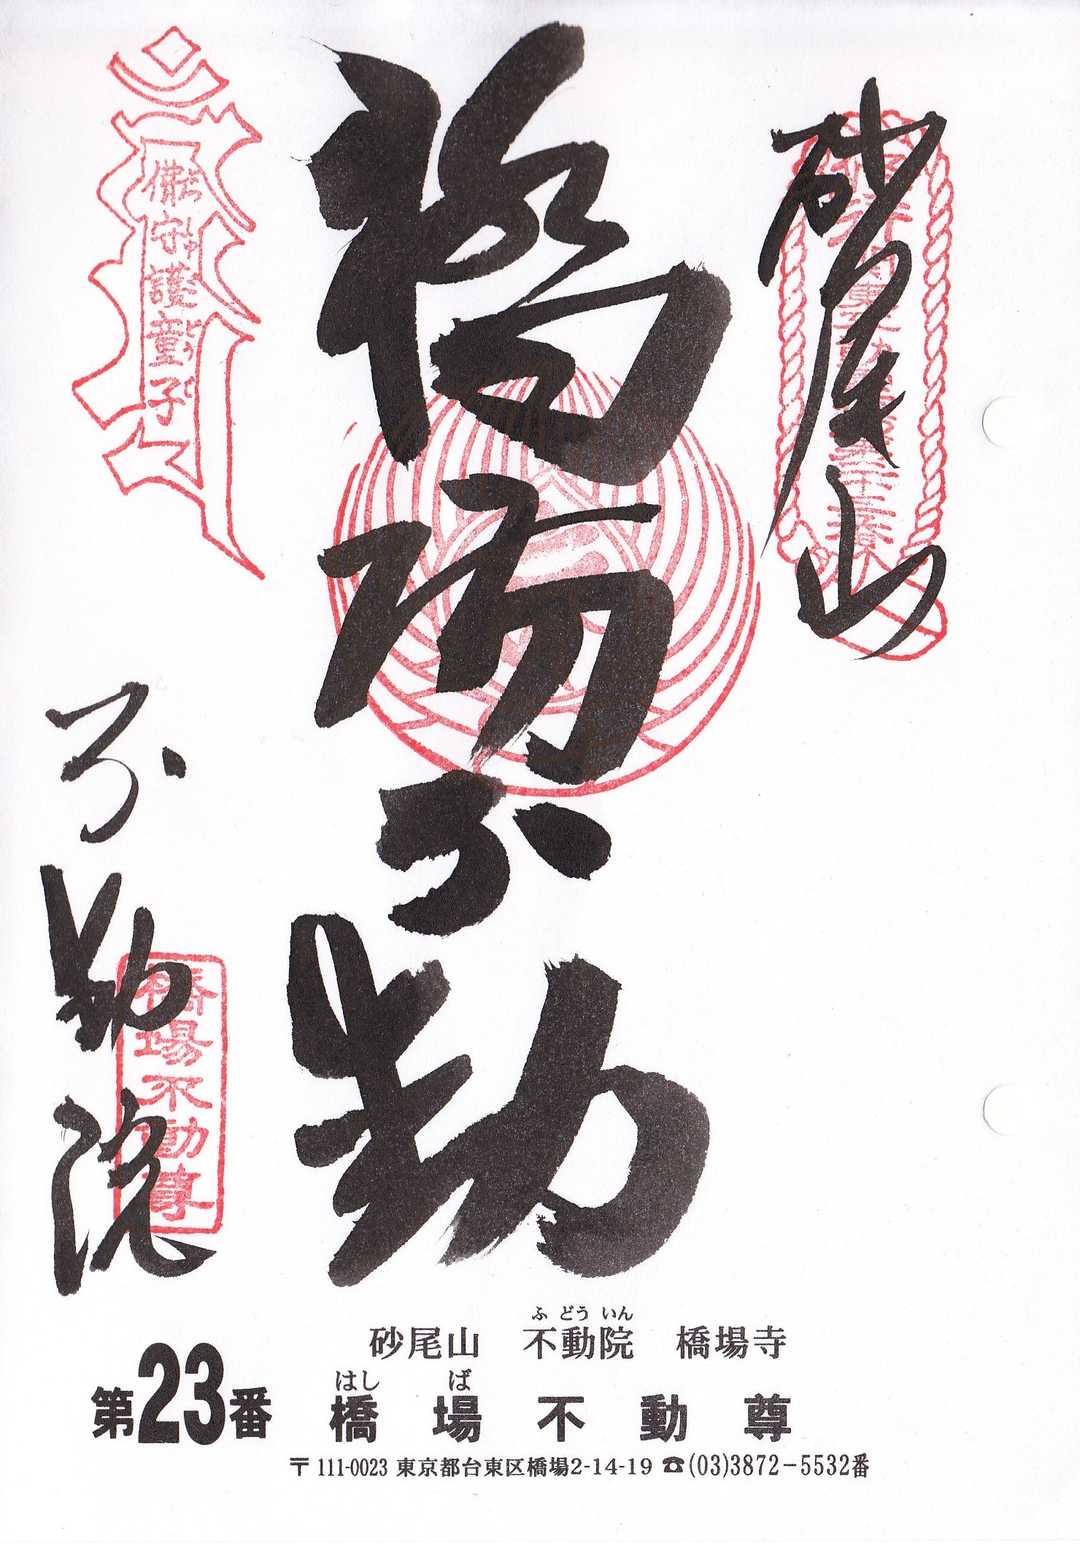 砂尾山
橋場不動
不動院
佛守護童子
橋場不動尊
ふ どう いん
砂尾山 不動院 橋場寺
はし ば
第23番 橋場不動尊
〒111-0023 東京都台東区橋場2-14-19 ☎(03)3872-5532番